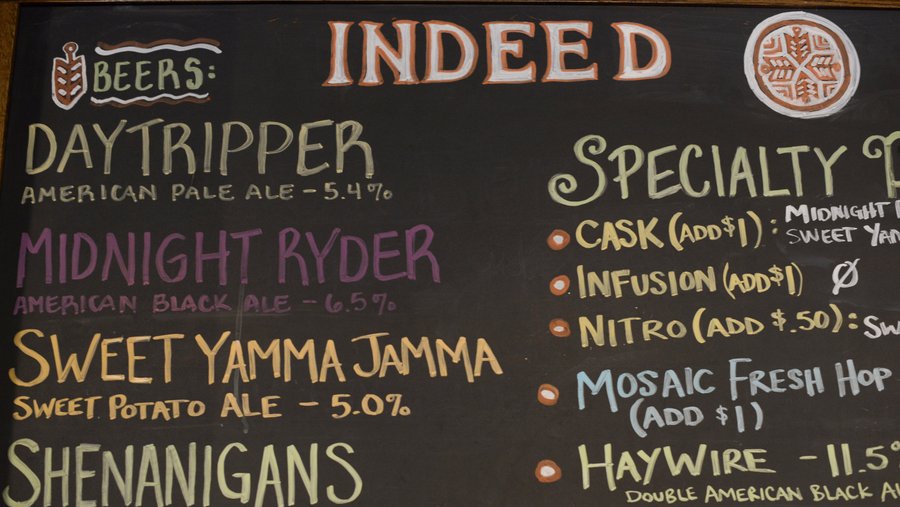 INDEED
BEERS:
DAYTRIPPER
AMERICAN PALE ALE - 5.4%
MIDNIGHT RYDER
AMERICAN BLACK ALE - 6.5%
SWEET YAMMA JAMMA
SWEET POTATO ALE - 5.0%
SHENANIGANS
SPECIALTY
CASK (ADD $1): MIDNIGHT
SWEET YAM
INFUSION (ADD $1) Ø
NITRO (ADD $.50): SW
MOSAIC FRESH HOP
(ADD $1)
HAYWIRE - 11.5%
DOUBLE AMERICAN BLACK